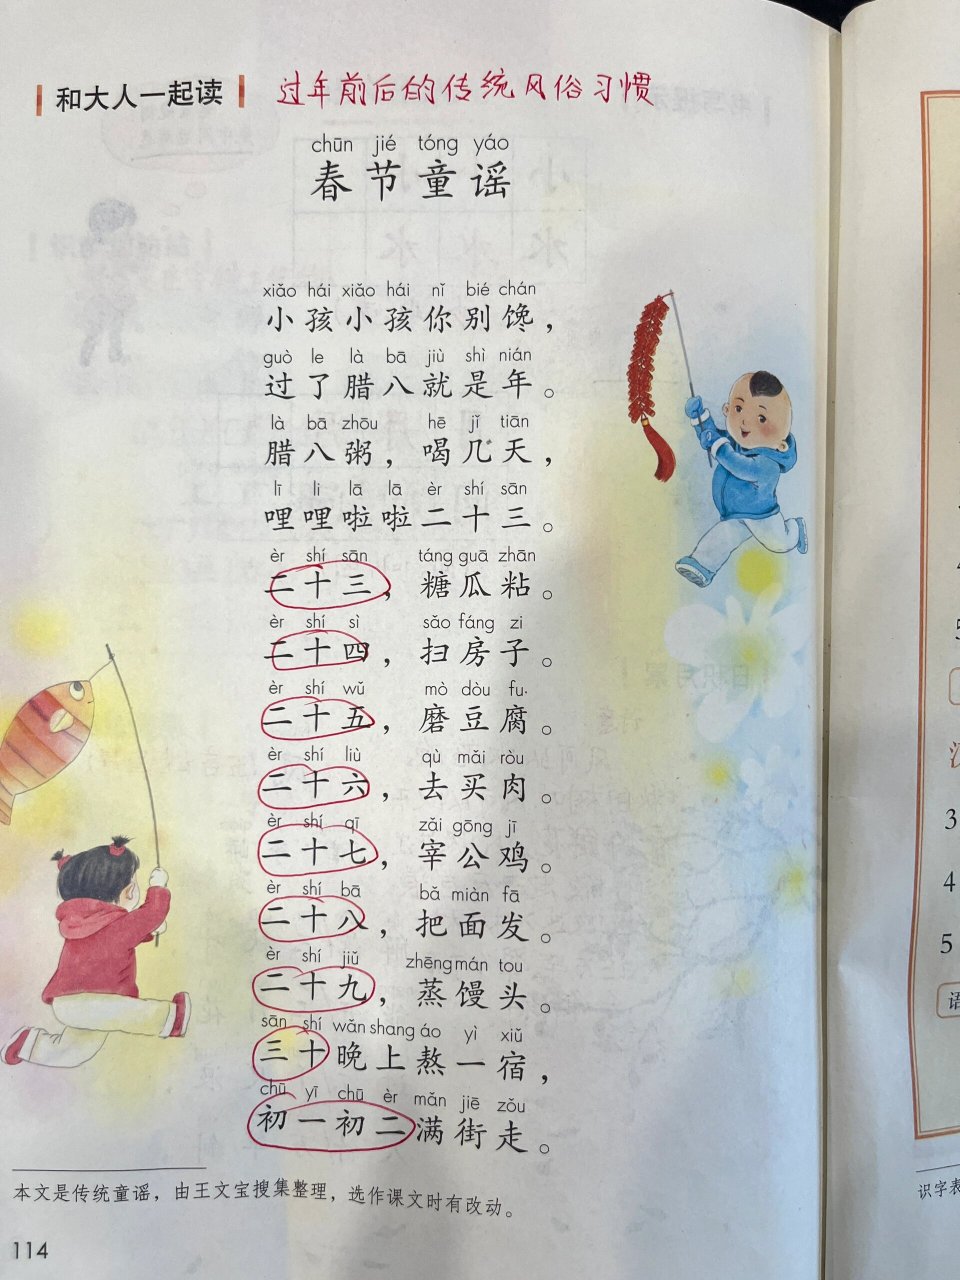 和大人一起读 过年前后的传统风俗习惯
chūn jié tóng yáo
春节童谣
xiǎo hái xiǎo hái nǐ bié chán
小孩小孩你别馋，
guò le là bā jiù shì nián
过了腊八就是年。
là bā zhōu hē jǐ tiān
腊八粥，喝几天，
lī li lā lā èr shí sān
哩哩啦啦二十三。
èr shí sān táng guā zhān
二十三，糖瓜粘。
èr shí sì sǎo fáng zi
二十四，扫房子。
èr shí wǔ mò dòu fu
二十五，磨豆腐。
èr shí liù qù mǎi ròu
二十六，去买肉。
èr shí qī zǎi gōng jī
二十七，宰公鸡。
èr shí bā bǎ miàn fā
二十八，把面发。
èr shí jiǔ zhēng mán tou
二十九，蒸馒头。
sān shí wǎn shang áo yì xiǔ
三十晚上熬一宿，
chū yī chū èr mǎn jiē zǒu
初一初二满街走。
本文是传统童谣，由王文宝搜集整理，选作课文时有改动。
114
3
4
5
语
识字表